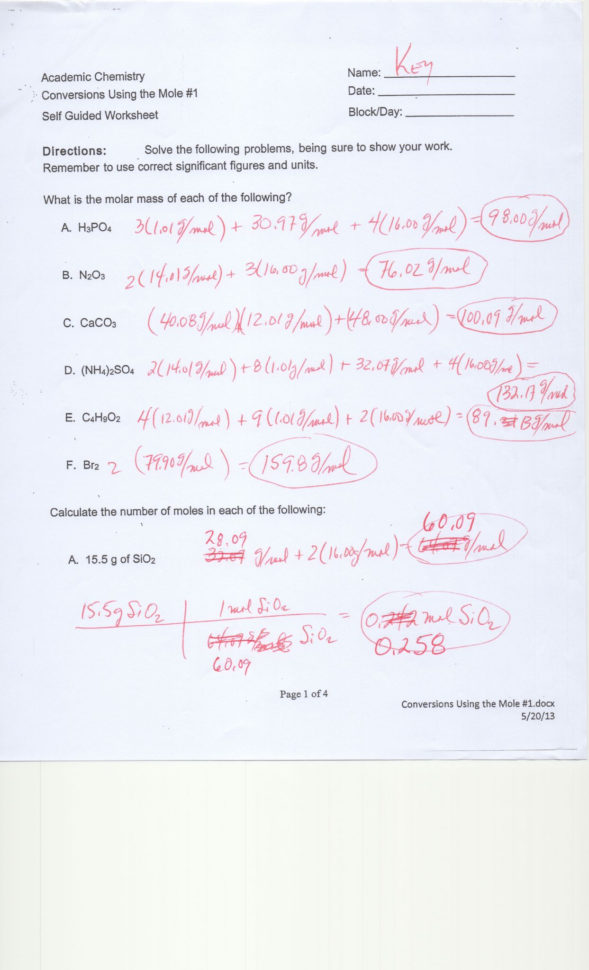 Academic Chemistry
Conversions Using the Mole #1
Self Guided Worksheet
Name: Key
Date:
Block/Day:
Directions: Solve the following problems, being sure to show your work.
Remember to use correct significant figures and units.
What is the molar mass of each of the following?
A. H₃PO₄ 3(1.01 g/mol) + 30.97 g/mol + 4(16.00 g/mol) = 98.00 g/mol
B. N₂O₃ 2(14.01 g/mol) + 3(16.00 g/mol) = 76.02 g/mol
C. CaCO₃ (40.08 g/mol)(12.01 g/mol) + (48.00 g/mol) = 100.09 g/mol
D. (NH₄)₂SO₄ 2(14.01 g/mol) + 8(1.01 g/mol) + 32.07 g/mol + 4(16.00 g/mol) =
132.17 g/mol
E. C₄H₉O₂ 4(12.01 g/mol) + 9(1.01 g/mol) + 2(16.00 g/mol) = 89.13 g/mol
F. Br₂ 2 (79.90 g/mol) = 159.8 g/mol
Calculate the number of moles in each of the following:
28.09 60.09
A. 15.5 g of SiO₂ g/mol + 2(16.00 g/mol) = g/mol
15.5g SiO₂ 1 mol SiO₂ = 0. mol SiO₂
SiO₂ 0.258
60.09
Page 1 of 4
Conversions Using the Mole #1.docx
5/20/13